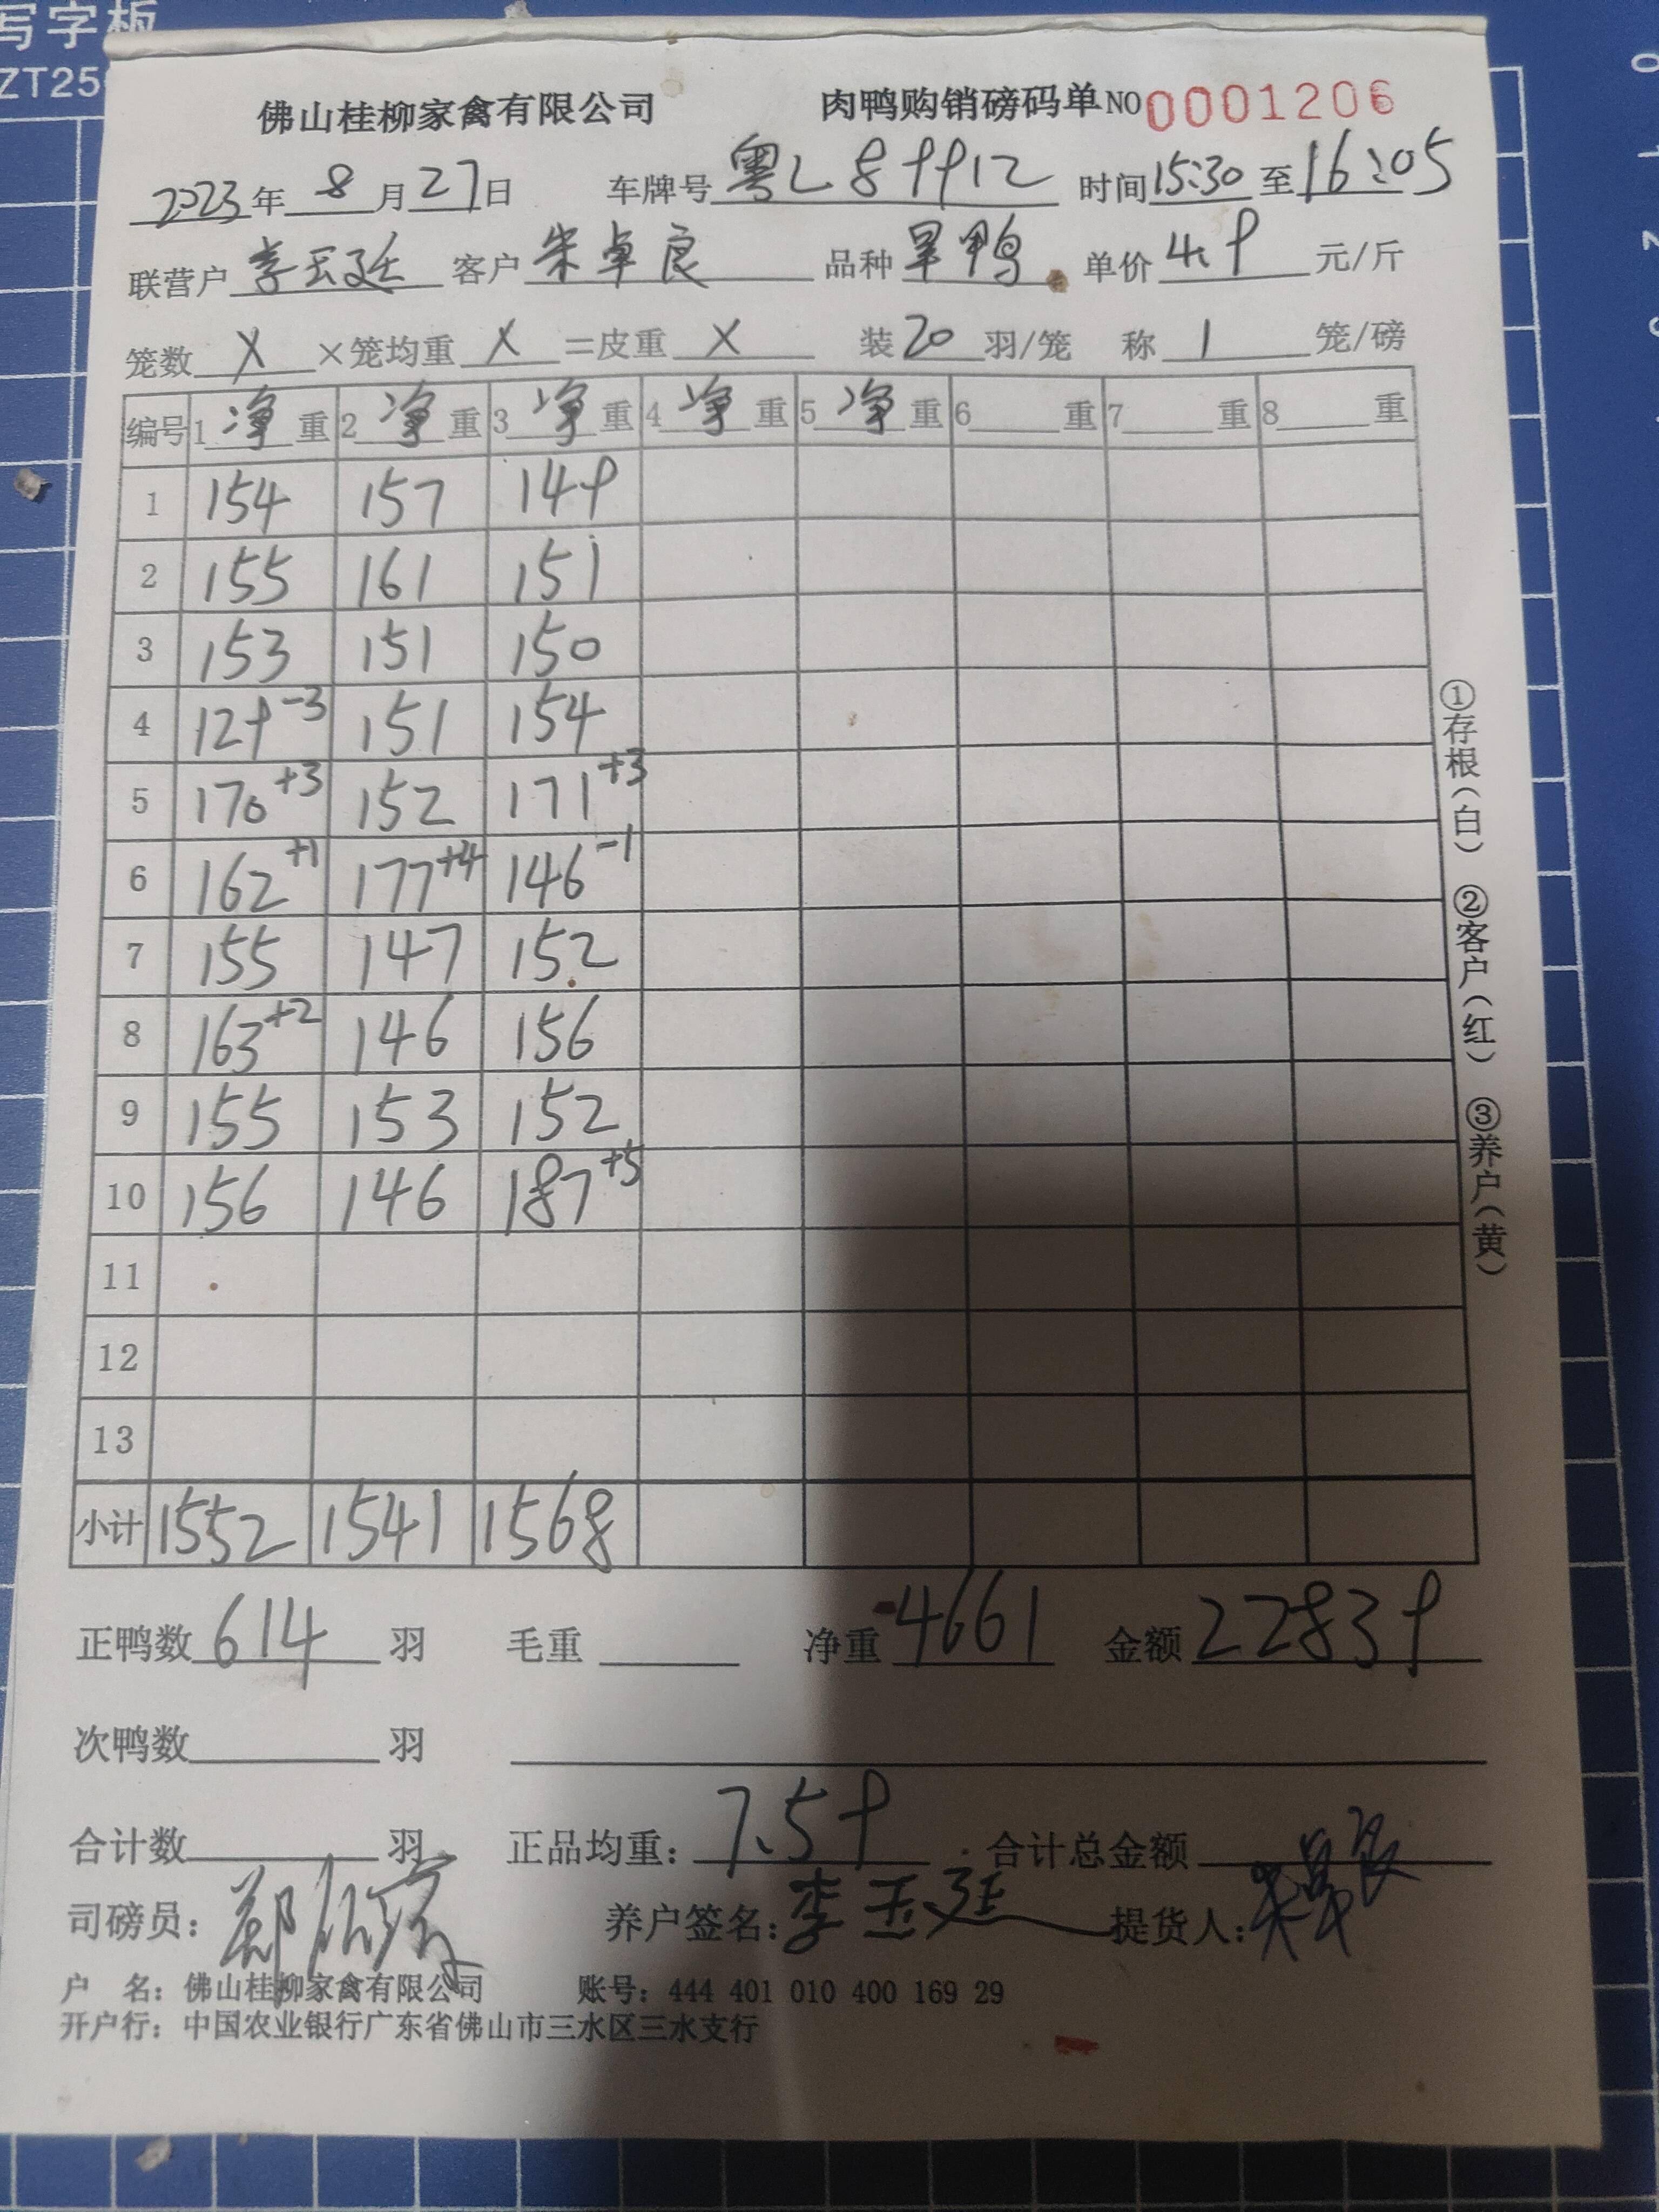 写字板
ZT25
佛山桂柳家禽有限公司 肉鸭购销磅码单NO 0001206
2023年 8 月 27日 车牌号 粤L89912 时间15:30 至16:05
联营户 李玉廷 客户 朱卓良 品种 旱鸭 单价 4.9 元/斤
笼数 X ×笼均重 X =皮重 X 装 20 羽/笼 称 1 笼/磅
编号 1 净 重 2 净 重 3 净 重 4 净 重 5 净 重 6 重 7 重 8 重
1 154 157 149
2 155 161 151
3 153 151 150
4 129-3 151 154
5 170+3 152 171+3
6 162+1 177+4 146-1
7 155 147 152
8 163+2 146 156
9 155 153 152
10 156 146 187+5
11
12
13
小计 1552 1541 1568
正鸭数 614 羽 毛重 净重 4661 金额 22839
次鸭数 羽
合计数 羽 正品均重: 7.59 合计总金额
司磅员: 养户签名:李玉廷 提货人:
户 名: 佛山桂柳家禽有限公司 账号: 444 401 010 400 169 29
开户行: 中国农业银行广东省佛山市三水区三水支行
①存根(白) ②客户(红) ③养户(黄)